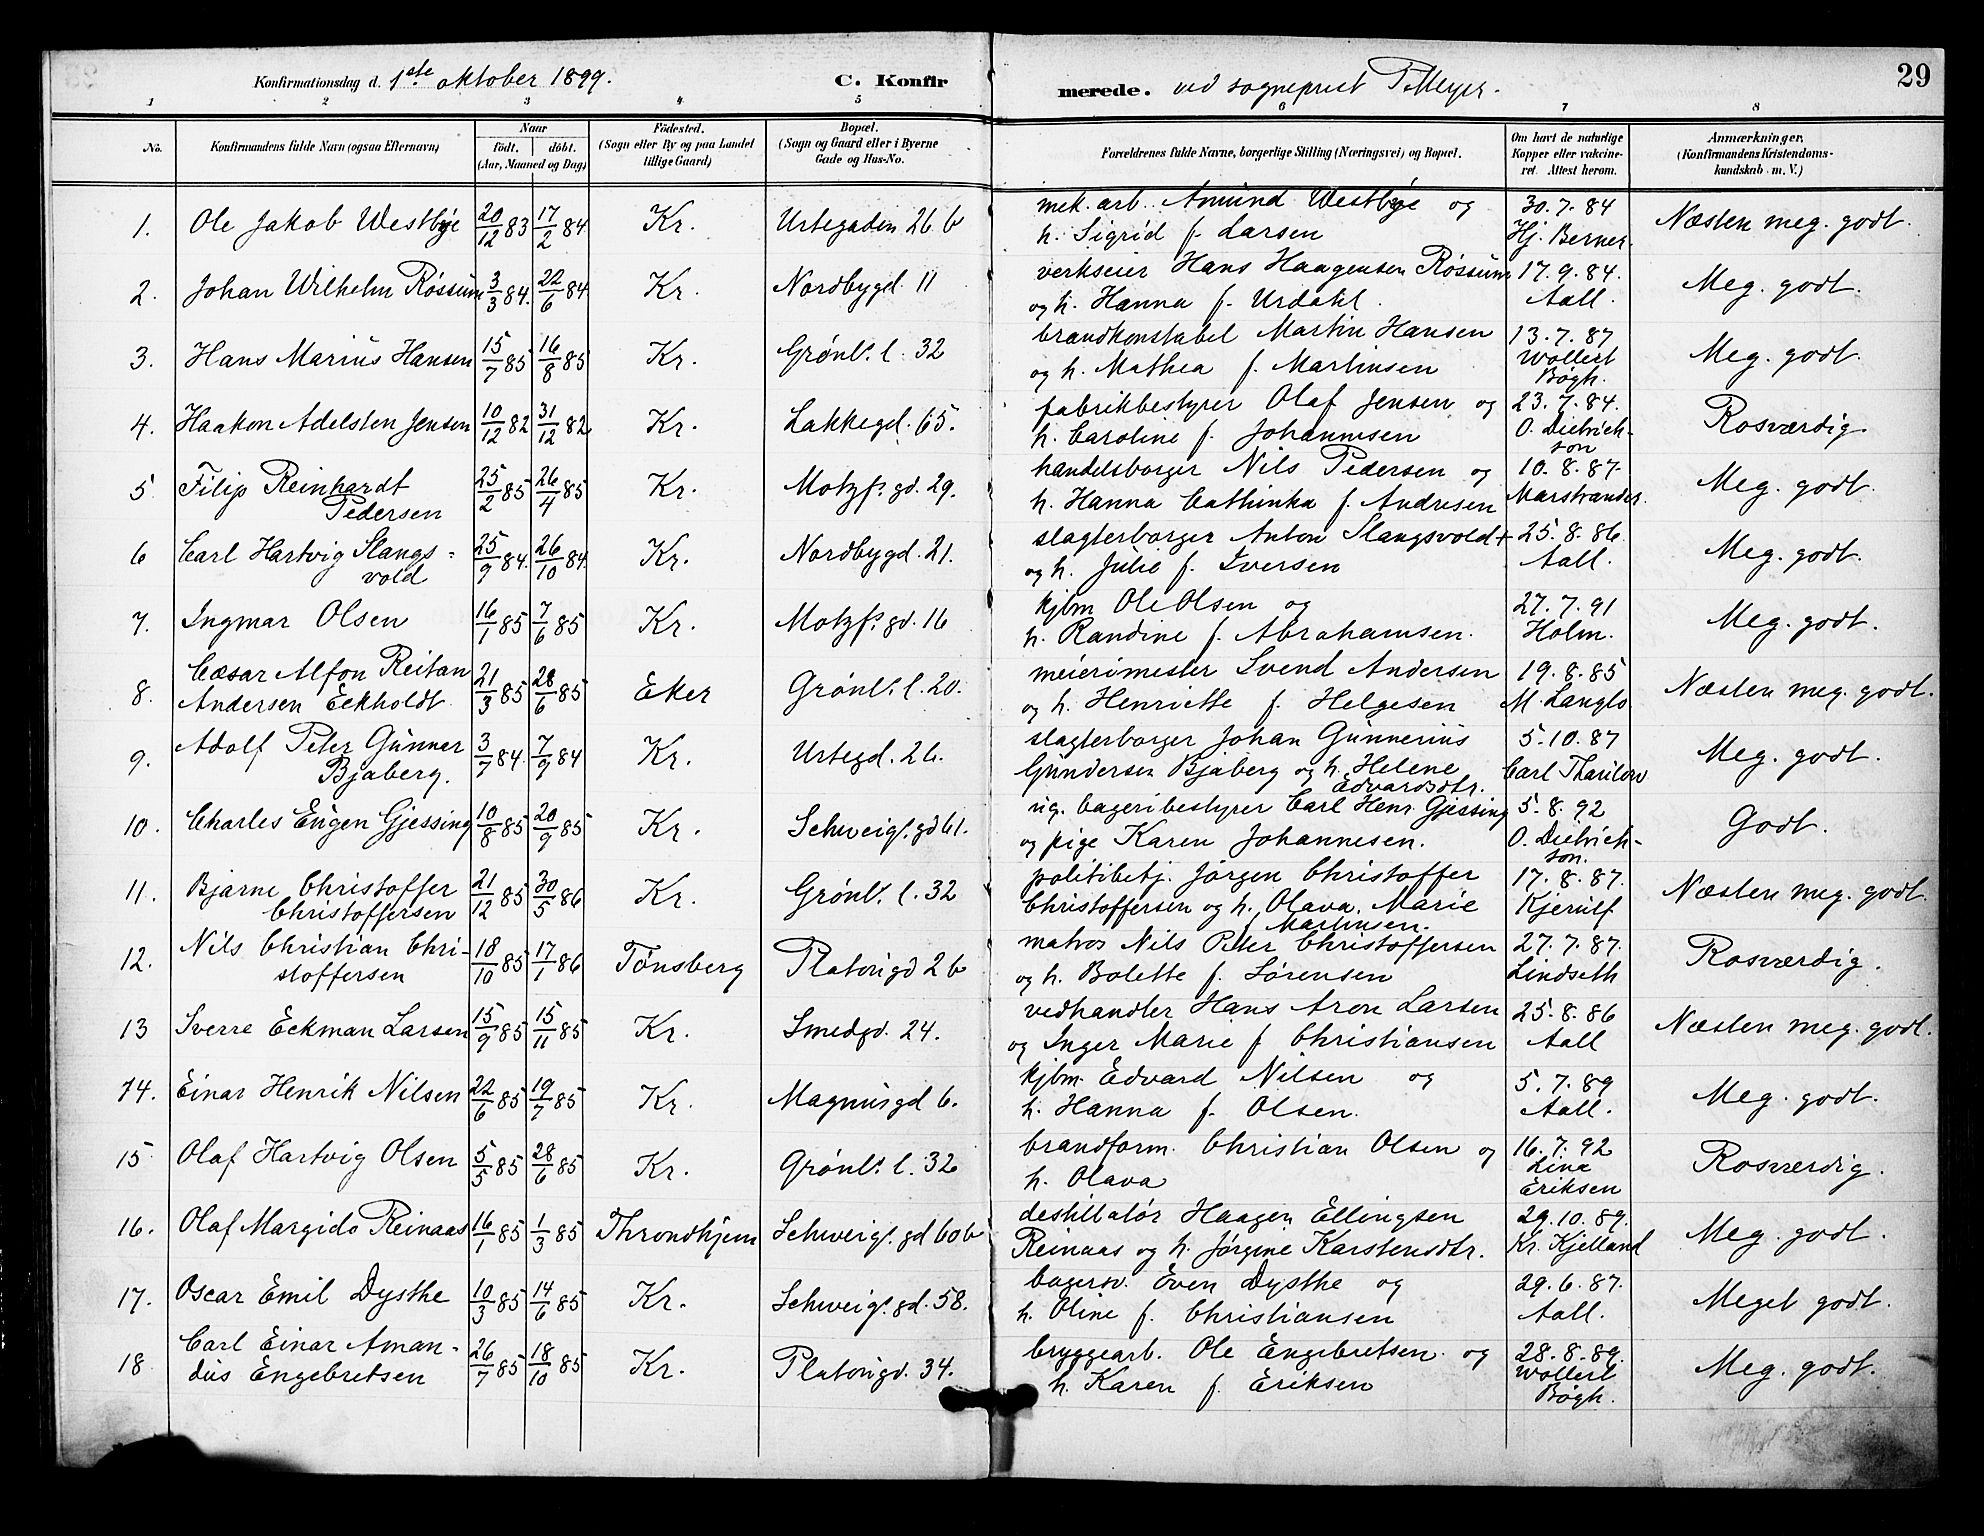 Konfirmationsdag d. 1ste oktober 1899. C. Konfirmerede. ved sogneprest T. Meyer. 29
1 2 3 4 5 6 7 8
No. Konfirmandens fulde Navn (ogsaa Efternavn) Naar født. døbt. (Aar, Maaned og Dag) Fødested. (Sogn eller By og paa Landet tillige Gaard) Bopæl. (Sogn og Gaard eller i Byerne Gade og Hus-No. Forældrenes fulde Navne, borgerlige Stilling (Næringsvei) og Bopæl. Om havt de naturlige Kopper eller vakcineret. Attest herom. Anmærkninger. (Konfirmandens Kristendomskundskab m. V.)
1. Ole Jakob Westbye 20/12 83 17/2 84 Kr. Urtegaden 26 b mek. arb. Amund Westbye og h. Sigrid f. Larsen 30.7.84 Hj. Berner. Næsten meg. godt.
2. Johan Wilhelm Røssum 3/3 84. 22/6 84 Kr. Nordbygd 11 verkseier Hans Haagensen Røssum og h. Hanna f. Urdahl. 17.9.84. Aall. Meg. godt.
3. Hans Marius Hansen 15/7 85 16/8 85 Kr. Grønl. l. 32 brandkonstabel Martin Hansen og h. Mathea f. Martinsen 13.7.87 Wollert Bøgh. Meg. godt.
4. Haakon Adelsten Jensen 10/12 82 31/12 82 Kr. Lakkegd. 65. fabrikbestyrer Olaf Jensen og h. Caroline f. Johannesen 23.7.84. O. Dietrichson Rosværdig.
5 Filip Reinhardt Pedersen 25/2 85 26/4 85 Kr. Motzf. gd. 29. handelsborger Nils Pedersen og h. Hanna Cathinka f. Andresen 10.8.87. Marstrander. Meg. godt.
6 Carl Hartvig Slangsvold 25/9 84. 26/10 84. Kr. Nordbygd. 21. slagterborger Anton Slangsvold + og h. Julie f. Iversen 25.8.86. Aall. Meg. godt.
7. Ingmar Olsen 16/1 85 7/6 85 Kr. Motzf. gd. 16 kjbm Ole Olsen og h. Randine f. Abrahamsen. 27.7.91 Holm. Meg. godt.
8. Cæsar Alfon Reitan Andersen Eckholdt 21/3 85 28/6 85 Eker Grønl. l. 20. meierimester Svend Andersen og h. Henriette f. Helgesen 19.8.85 M. Langlo Næsten meg. godt.
9. Adolf Peter Gunner Bjaberg. 3/7 84. 7/9 84 Kr. Urtegd. 26. slagterborger Johan Gunnerius Gundersen Bjaberg og h. Helene Edvardsdtr. 5.10.87 Carl Meg. godt.
10. Charles Eugen Gjessing 10/8 85 20/9 85 Kr. Schweig. gd 61. ug. bageribestyrer Carl Henr. Gjessing og pige Karen Johannesen. 5.8.92 O. Dietrichson. Godt.
11. Bjarne Christoffer Christoffersen 21/12 85 30/5 86 Kr. Grønl. l. 32 politibetj. Jørgen Christoffer Christoffersen og h. Olava Marie f. Martinsen. 17.8.87. Kjerulf Næsten meg. godt.
12. Nils Christian Christoffersen 18/10 85 17/1 86 Tønsberg Platougd 2 b matros Nils Peter Christoffersen og h. Bolette f. Sørensen 27.7.87. Lindseth Rosværdig.
13 Sverre Eckman Larsen 15/9 85 15/11 85 Kr. Smedgd. 24. vedhandler Hans Aron Larsen og Inger Marie f Christiansen 25.8.86 Aall Næsten meg. godt.
14. Einar Henrik Nilsen 22/6 85 19/7 85 Kr. Magnusgd 6. kjbm. Edvard Nilsen og h. Hanna f. Olsen. 5.7.89 Aall. Meg. godt.
15 Olaf Hartvig Olsen 5/5 85 28/6 85 Kr. Grønl. l. 32 brandform. Christian Olsen og h. Olava 16.7.92 Lina Eriksen Rosværdig.
16. Olaf Margido Reinaas 16/1 85 1/3 85 Throndhjem Schweig. gd 60 b destillatør Haagen Ellingsen Reinaas og h. Jørgine Karstensdtr. 29.10.89. Kr. Kjelland Meg. godt.
17. Oscar Emil Dysthe 10/3 85 14/6 85 Kr. Schweig. gd. 58. bagersv. Even Dysthe og h. Oline f. Christiansen 29.6.87. Aall. Meget godt.
18 Carl Einar Amandus Engebretsen 26/7 85 18/10 85 Kr. Platougd. 34. bryggearb. Ole Engebretsen og h. Karen f. Eriksen 28.8.89. Wollert Bøgh. Meg. godt.